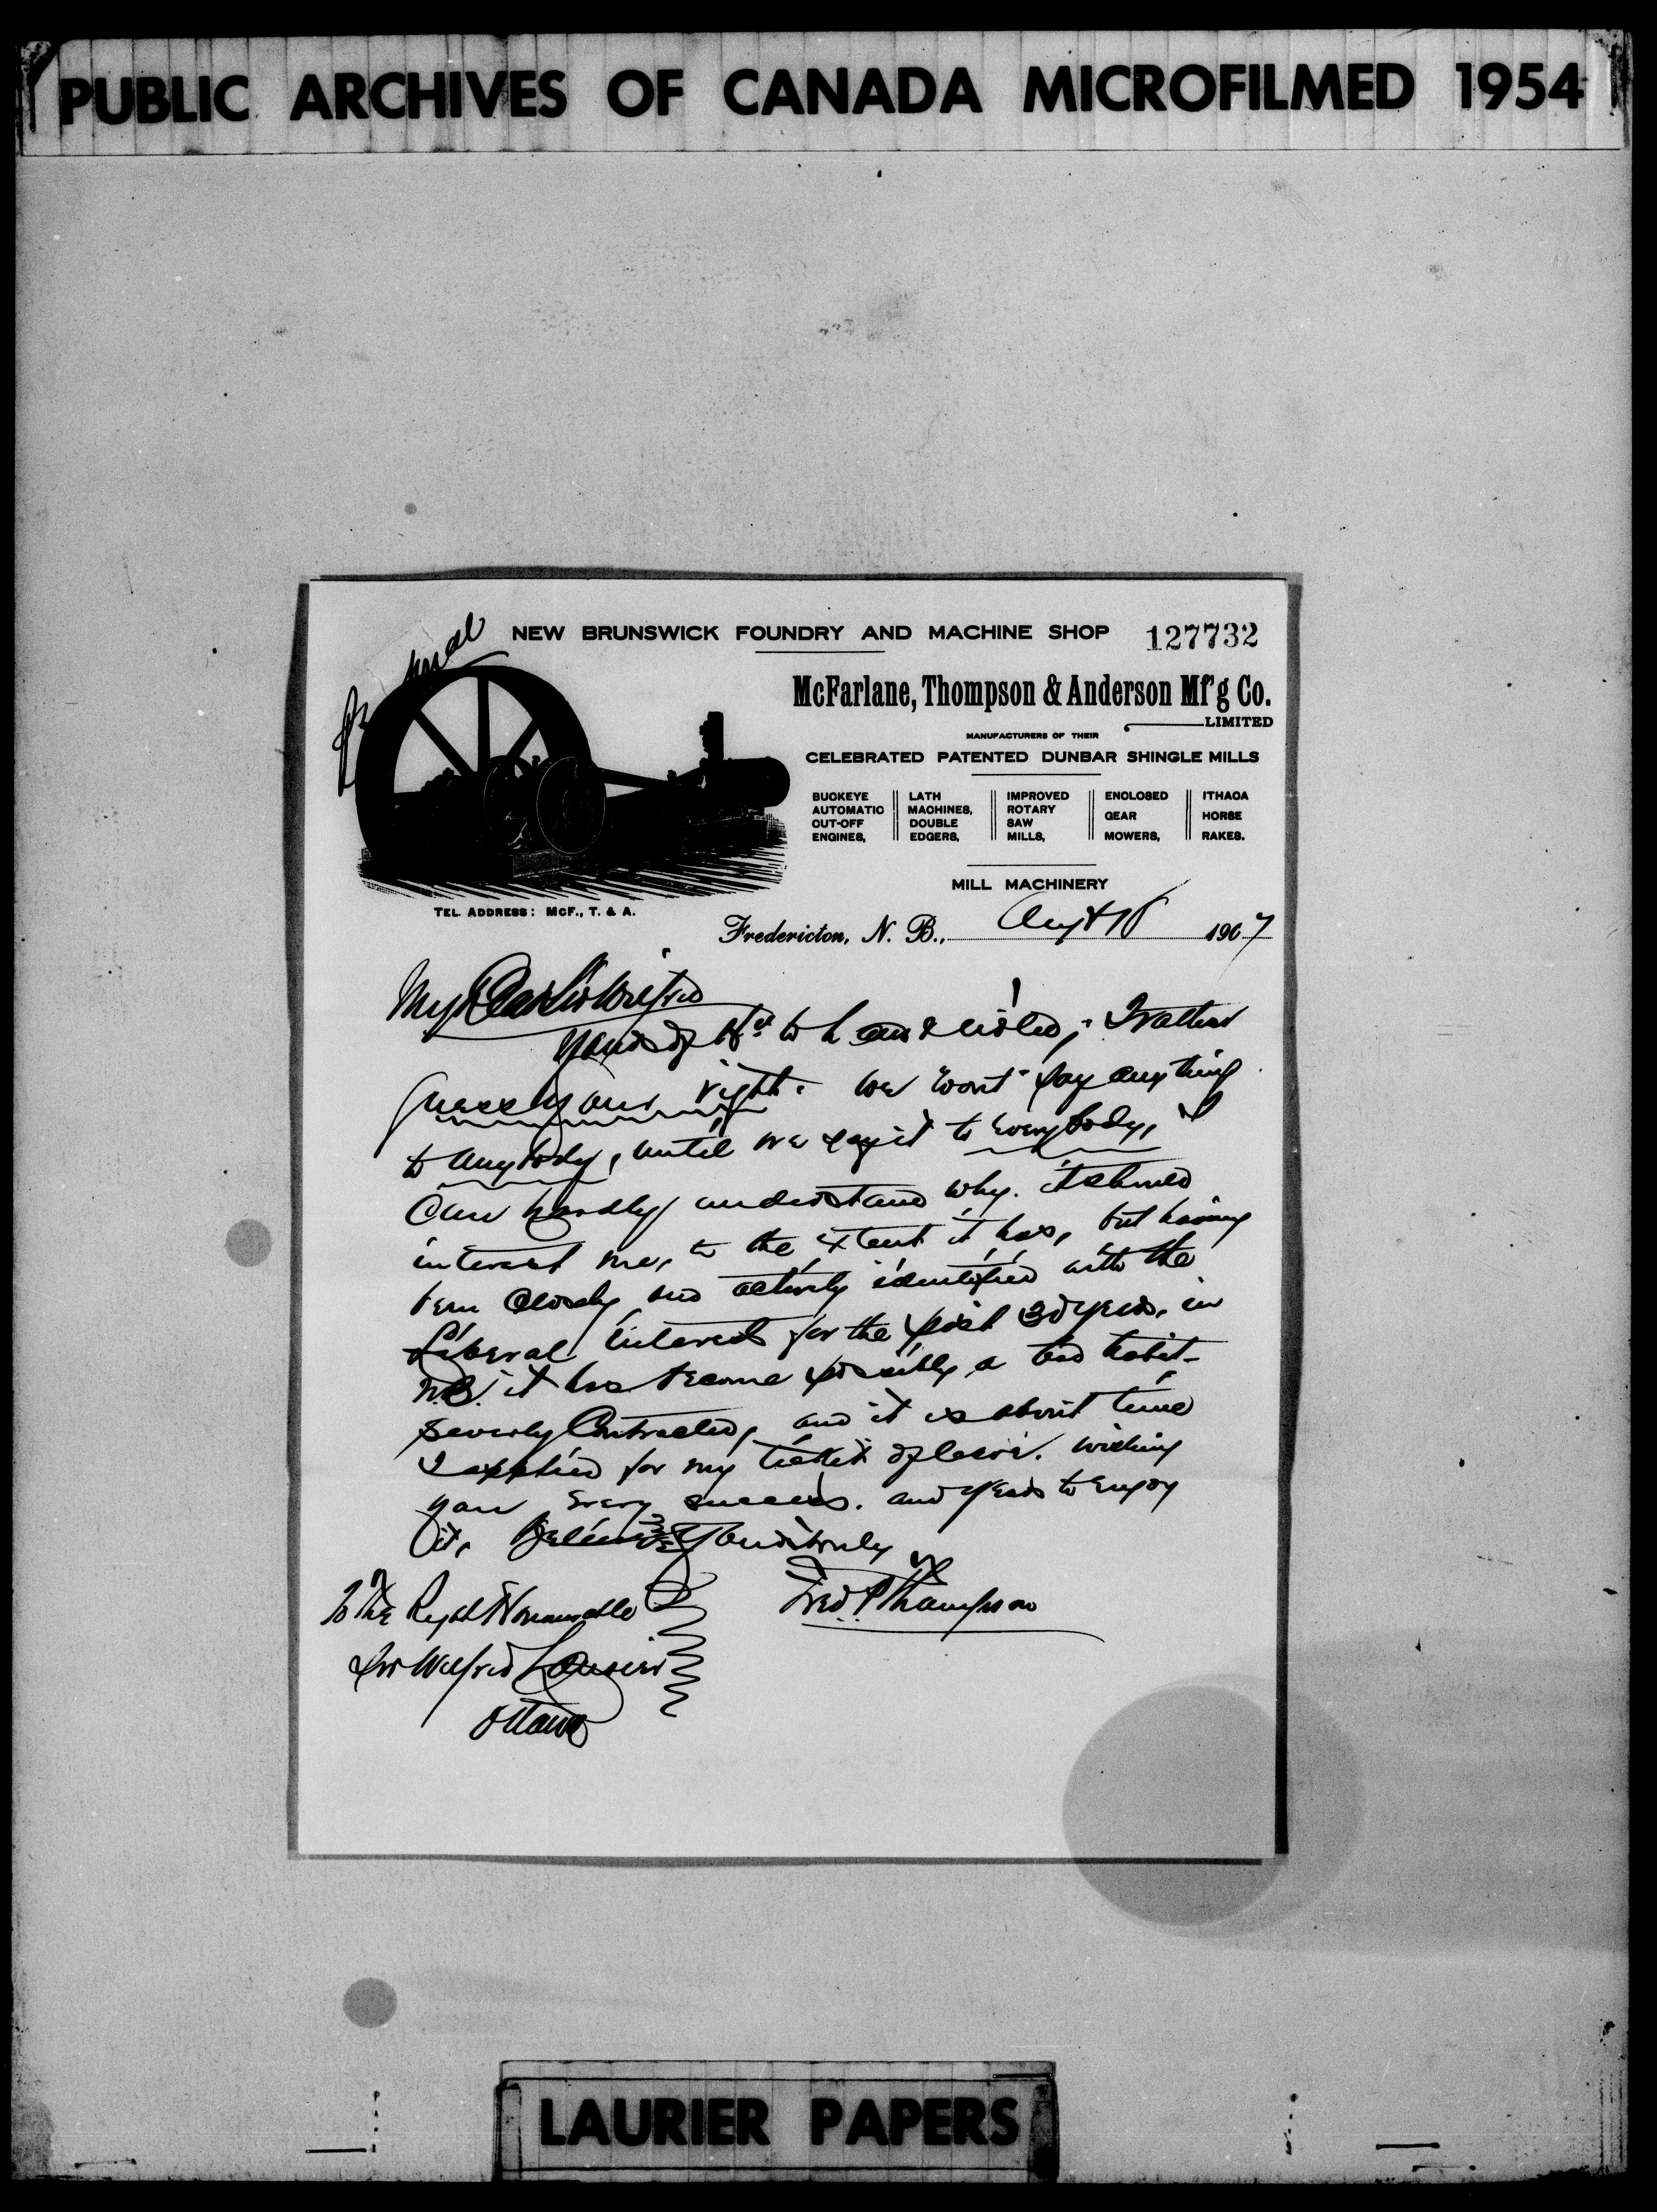 PUBLIC ARCHIVES OF CANADA MICROFILMED 1954
NEW BRUNSWICK FOUNDRY AND MACHINE SHOP 127732
McFarlane, Thompson & Anderson Mf'g Co.
LIMITED
MANUFACTURERS OF THEIR
CELEBRATED PATENTED DUNBAR SHINGLE MILLS
BUCKEYE AUTOMATIC CUT-OFF ENGINES,
LATH MACHINES, DOUBLE EDGERS,
IMPROVED ROTARY SAW MILLS,
ENCLOSED GEAR MOWERS,
ITHACA HORSE RAKES.
MILL MACHINERY
TEL. ADDRESS: McF., T. & A.
Fredericton, N. B., Augt 1907
My Dear Sir Wilfrid
Yours of to h and noted, I rather
guess your right. we "wont" say anything
to anybody, until we say it to everybody, I
Can hardly understand why. it should
interest me, to the extent it has, but having
been closely and actively identified with the
Liberal interest for the past 30 years, in
N.B. it has become possibly a bad habit-
severly Contracted, and it is about time
I applied for my ticket of leave. wishing
you every success. and years to enjoy
it, Believe Yours truly
Fred P Thompson
To The Right Honourable
Sir Wilfrid Laurier
Ottawa
LAURIER PAPERS